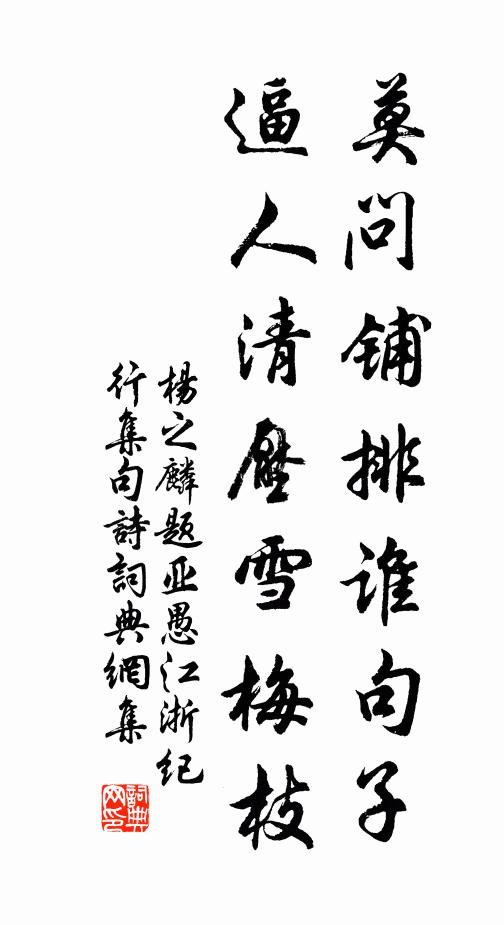 莫问铺排谁句子
逼人清壓雪梅枝
楊之麟题亚愚江浙纪
行集句詩詞典網集
詞典网印